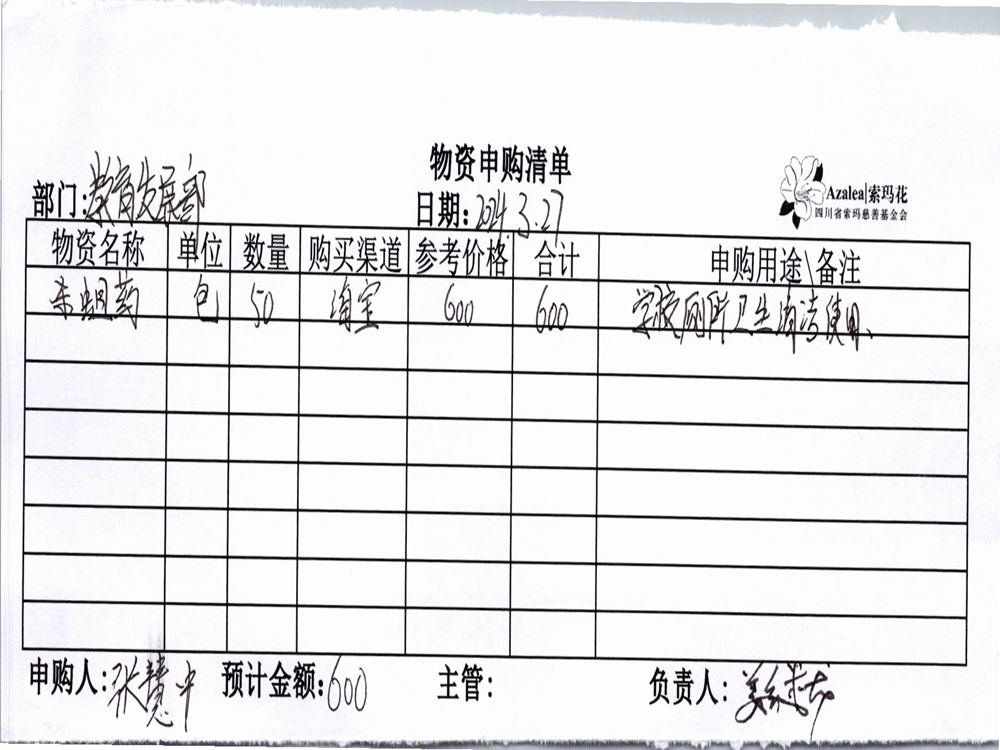 物资申购清单
Azalea|索玛花
四川省索玛慈善基金会
部门:教育发展部 日期:2024.3.27
物资名称 单位 数量 购买渠道 参考价格 合计 申购用途\备注
杀蛆药 包 50 淘宝 600 600 学校厕所卫生清洁使用、
申购人:张慧中 预计金额:600 主管: 负责人: